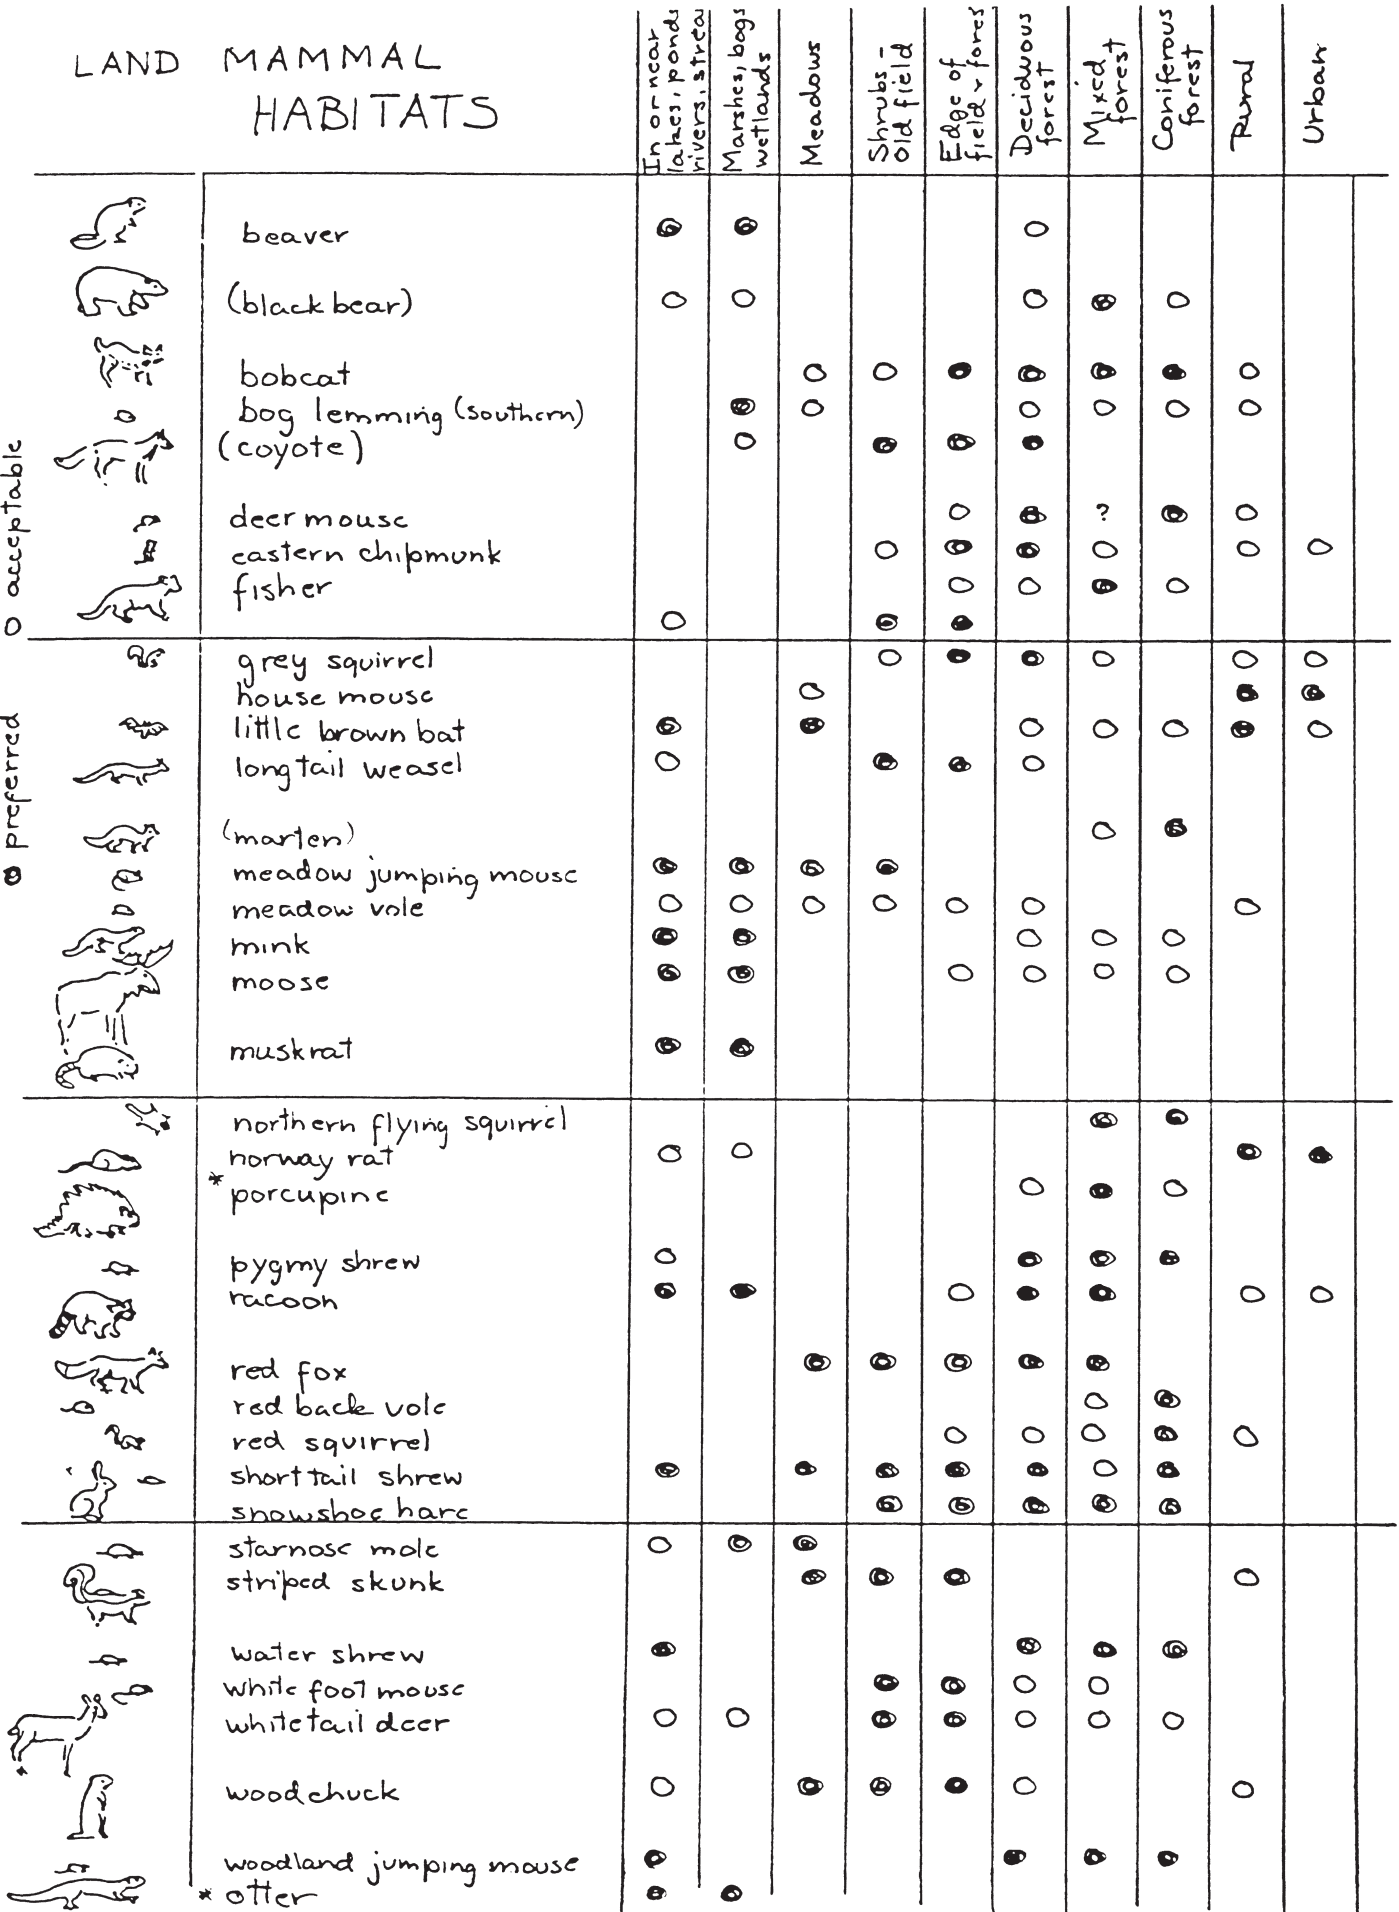 LAND MAMMAL
HABITATS
In or near
lakes, ponds
rivers, strea
Marshes, bogs
wetlands
Meadows
Shrubs -
Old field
Edge of
field & fores
Deciduous
forest
Mixed
forest
Coniferous
forest
Rural
Urban
O acceptable
preferred
beaver
(black bear)
bobcat
bog lemming (southern)
(coyote)
deer mouse
?
eastern chipmunk
fisher
grey squirrel
house mouse
little brown bat
longtail weasel
(marten)
meadow jumping mouse
meadow vole
mink
moose
muskrat
northern flying squirrel
norway rat
* porcupine
pygmy shrew
racoon
red fox
red back vole
red squirrel
short tail shrew
snowshoe hare
starnose mole
striped skunk
water shrew
white foot mouse
whitetail deer
woodchuck
woodland jumping mouse
* otter